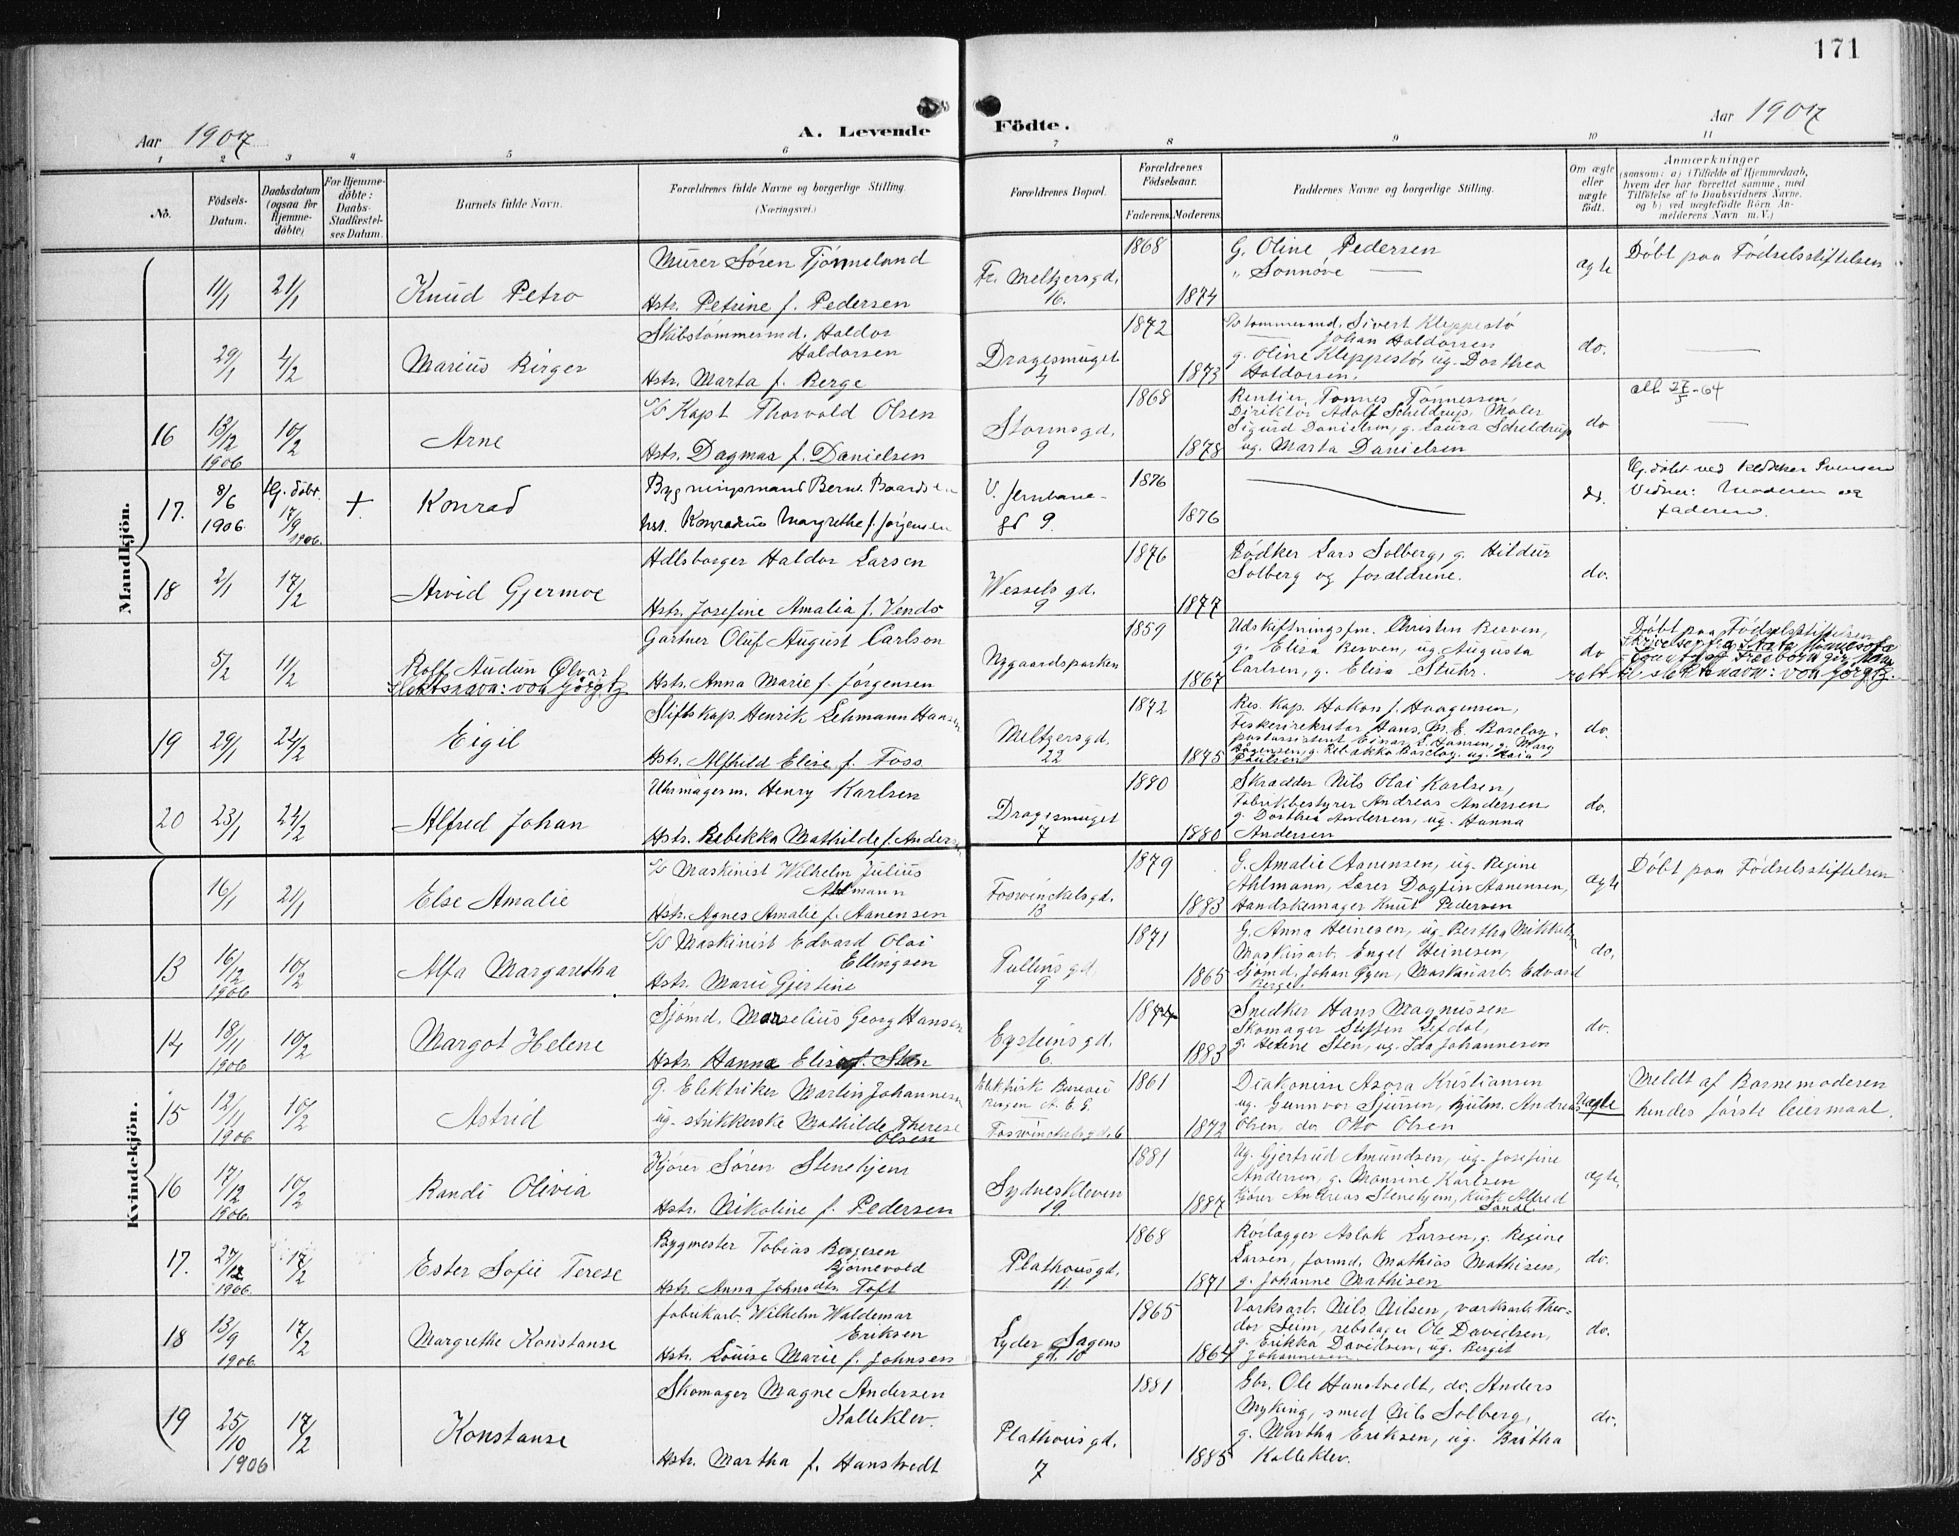 171
Aar 1907
A. Levende Födte.
Aar 1907
1 2 3 4 5 6 7 8 9 10 11
No.
Födsels-Datum.
Daabsdatum (ogsaa for Hjemme-döbte)
For Hjemme-döbte: Daabs-Stadfæstel-ses Datum.
Barnets fulde Navn.
Forældrenes fulde Navne og borgerlige Stilling.
(Næringsvei.)
Forældrenes Bopæl.
Forældrenes Födselsaar.
Faderens. Moderens.
Faddernes Navne og borgerlige Stilling.
Om ægte eller uægte födt.
Anmærkninger
(saasom: a) i Tilfælde af Hjemmedaab, hvem der har forrettet samme, med Tilföielse af to Daabsvidners Navne. og b) ved uægtefödte Börn An-melderens Navn m. V.)
Mandkjön.
11/1 21/1 Knud Petro
Murer Søren Tjønneland
Hstr. Petrine f. Pedersen
Fr. Meltzersgd. 16.
1868 1874
G. Oline Pedersen
" Sonnøve —
ægte
Døbt paa Fødselsstiftelsen
29/1 4/2 Marius Birger
Skibstømmermd. Haldor Haldorsen
Hstr. Marta f. Berge
Dragesmuget 4
1872 1873
Sivert Kleppestø
Johan Haldorsen
g. Oline Kleppestø, ug. Dorthea
Haldorsen.
do. —
16 13/2 1906 10/2 Arne
S/S Kapt Thorvald Olsen
Hstr. Dagmar f. Danielsen
Stormsgd. 9
1868 1878
Rentier Tønnes Tønnessen,
Direktør Adolf Scheldrup, Maler
Sigurd Danielsen, g. Laura Scheldrup
ug. Marta Danielsen
do —
17. 8/6 1906 Hj. døbt 17/9 1906 + Konrad
Bygningsmand Bernt Baardsen
hst. Konradine Margrethe f. Jørgensen
V. Jernbanegd 9.
1876 1876
do.
Hj. døbt ved Klokker Svensen
Vidner: Moderen og
Faderen.
18 2/1 17/2 Arvid Gjermoe
Hdlsborger Haldor Larsen
Hstr. Josefine Amalia f. Vends
Wesselsgd. 9
1876 1877
Bødker Lars Solberg, g. Hildur
Solberg og forældrene.
do.
5/2 11/2 Rolf Audun Olvar
Slektsnavn: von Görgtz
Gartner Oluf August Carlson
Hstr. Anna Marie f. Jørgensen
Nygaardsparken
1859 1867
Udskiftningsfm. Christen Berven,
g. Elisa Berven, ug. Augusta
Carlsen, g. Elisa Stuhr.
do
Døbt paa Fødselsstiftelsen
19 29/1 24/2 Eigil
Stiftskap. Henrik Lehmann Hansen
Hstr. Alfhild Elise f. Foss
Meltzersgd. 22
1872 1875
Res. Kap. Hakon J. Haagensen,
Fiskerisekretær Hans M. E. Barclay,
postassistent Einar L. Hansen, g. Mary
g. Rebekka Barclay, ug. Maia
Paulsen
do.
20 23/1 24/2 Alfred Johan
Uhrmagerm. Henry Karlsen
Hstr. Rebekka Mathilde f. Andersen
Dragesmuget 7
1880 1880
Skrædder Nils Olai Karlsen,
Fabrikbestyrer Andreas Andersen
g. Dorthea Andersen, ug. Hanna
Andersen
do.
Kvindekjön.
16/1 21/1 Else Amalie
S/S Maskinist Wilhelm Julius Ahlmann
Hstr. Agnes Amalie f. Aanensen
Foswinckelsgd. 13
1879 1883
G. Amalie Aanensen, ug. Regine
Ahlmann, Lærer Dagfin Aanensen,
Handskemager Knut Pedersen
ægte
Døbt paa Fødselsstiftelsen
13 16/12 1906 10/2 Alfa Margaretha
S/S Maskinist Edvard Olai Ellingsen
Hstr. Marie Gjertine
Tullinsgd. 9
1871 1865
G. Anna Heinesen, ug. Bertha Mikkelsen
Maskinarb. Engel Heinesen,
Sjømd. Johan Ggen, Maskinarb. Edvard
Berge.
do.
14 18/11 1906 10/2 Margot Helene
Sjømd. Marselius Georg Hansen
Hstr. Hanna Elise f. Sten
Eysteinsgd. 6.
1874 1883
Snedker Hans Magnussen
Skomager Steffen Lefdal,
g. Helene Sten, ug. Ida Johannesen
do.
15 12/11 1906 10/2 Astrid
g. Elektriker Martin Johannesen
ug. strikkerske Mathilde Therese Olsen
Elektrisk Bureau
Bergen A. E. G.
Foswinckelsgd. 6
1861 1872
Diakonisse Asora Kristiansen
ug. Gunnvor Sjursen, Hjulm. Andreas
Olsen, do. Otto Olsen
Uægte
Meldt af Barnemoderen
hendes første leiermaal.
16 17/12 1906. 10/2 Randi Olivia
Kjører Søren Stenehjem
Hstr. Nikoline f. Pedersen
Sydneskleven 19.
1881 1887
Ug. Gjertrud Amundsen, ug. Josefine
Andersen, g. Mansine Karlsen
Kjører Andreas Stenehjem, Kusk Alfred
Sandl
ægte.
17. 27/12 1906. 17/2 Ester Sofie Terese
Bygmester Tobias Børgesen Bjørnevold
Hstr. Anna Johnsdtr. Toft
Plathousgd. 11.
1868 1871
Rørlægger Aslak Larsen, g. Regine
Larsen, formd. Mathias Mathisen,
g. Johanne Mathisen
do.
18 13/9 1906 17/2 Margrethe Konstanse
Fabrikarb. Wilhelm Waldemar Eriksen
Hstr. Louise Marie f. Johnsen
Lyder Sagens gd. 10
1865 1864
Værksarb. Nils Nilsen, værksarb. Theo-
dor Seim, rebslager Ole Davidsen,
g. Erikka Davidsen, ug. Bergit
Johannesen
do.
19 25/10 1906 17/2 Konstanse
Skomager Magne Andersen Kalleklev.
Hstr. Martha f. Hanstvedt
Plathousgd. 7
1881 1885
Gbr. Ole Hanstvedt, do. Anders
Myking, smed Nils Solberg,
g. Martha Eriksen, ug. Britha
Kalleklev.
do.